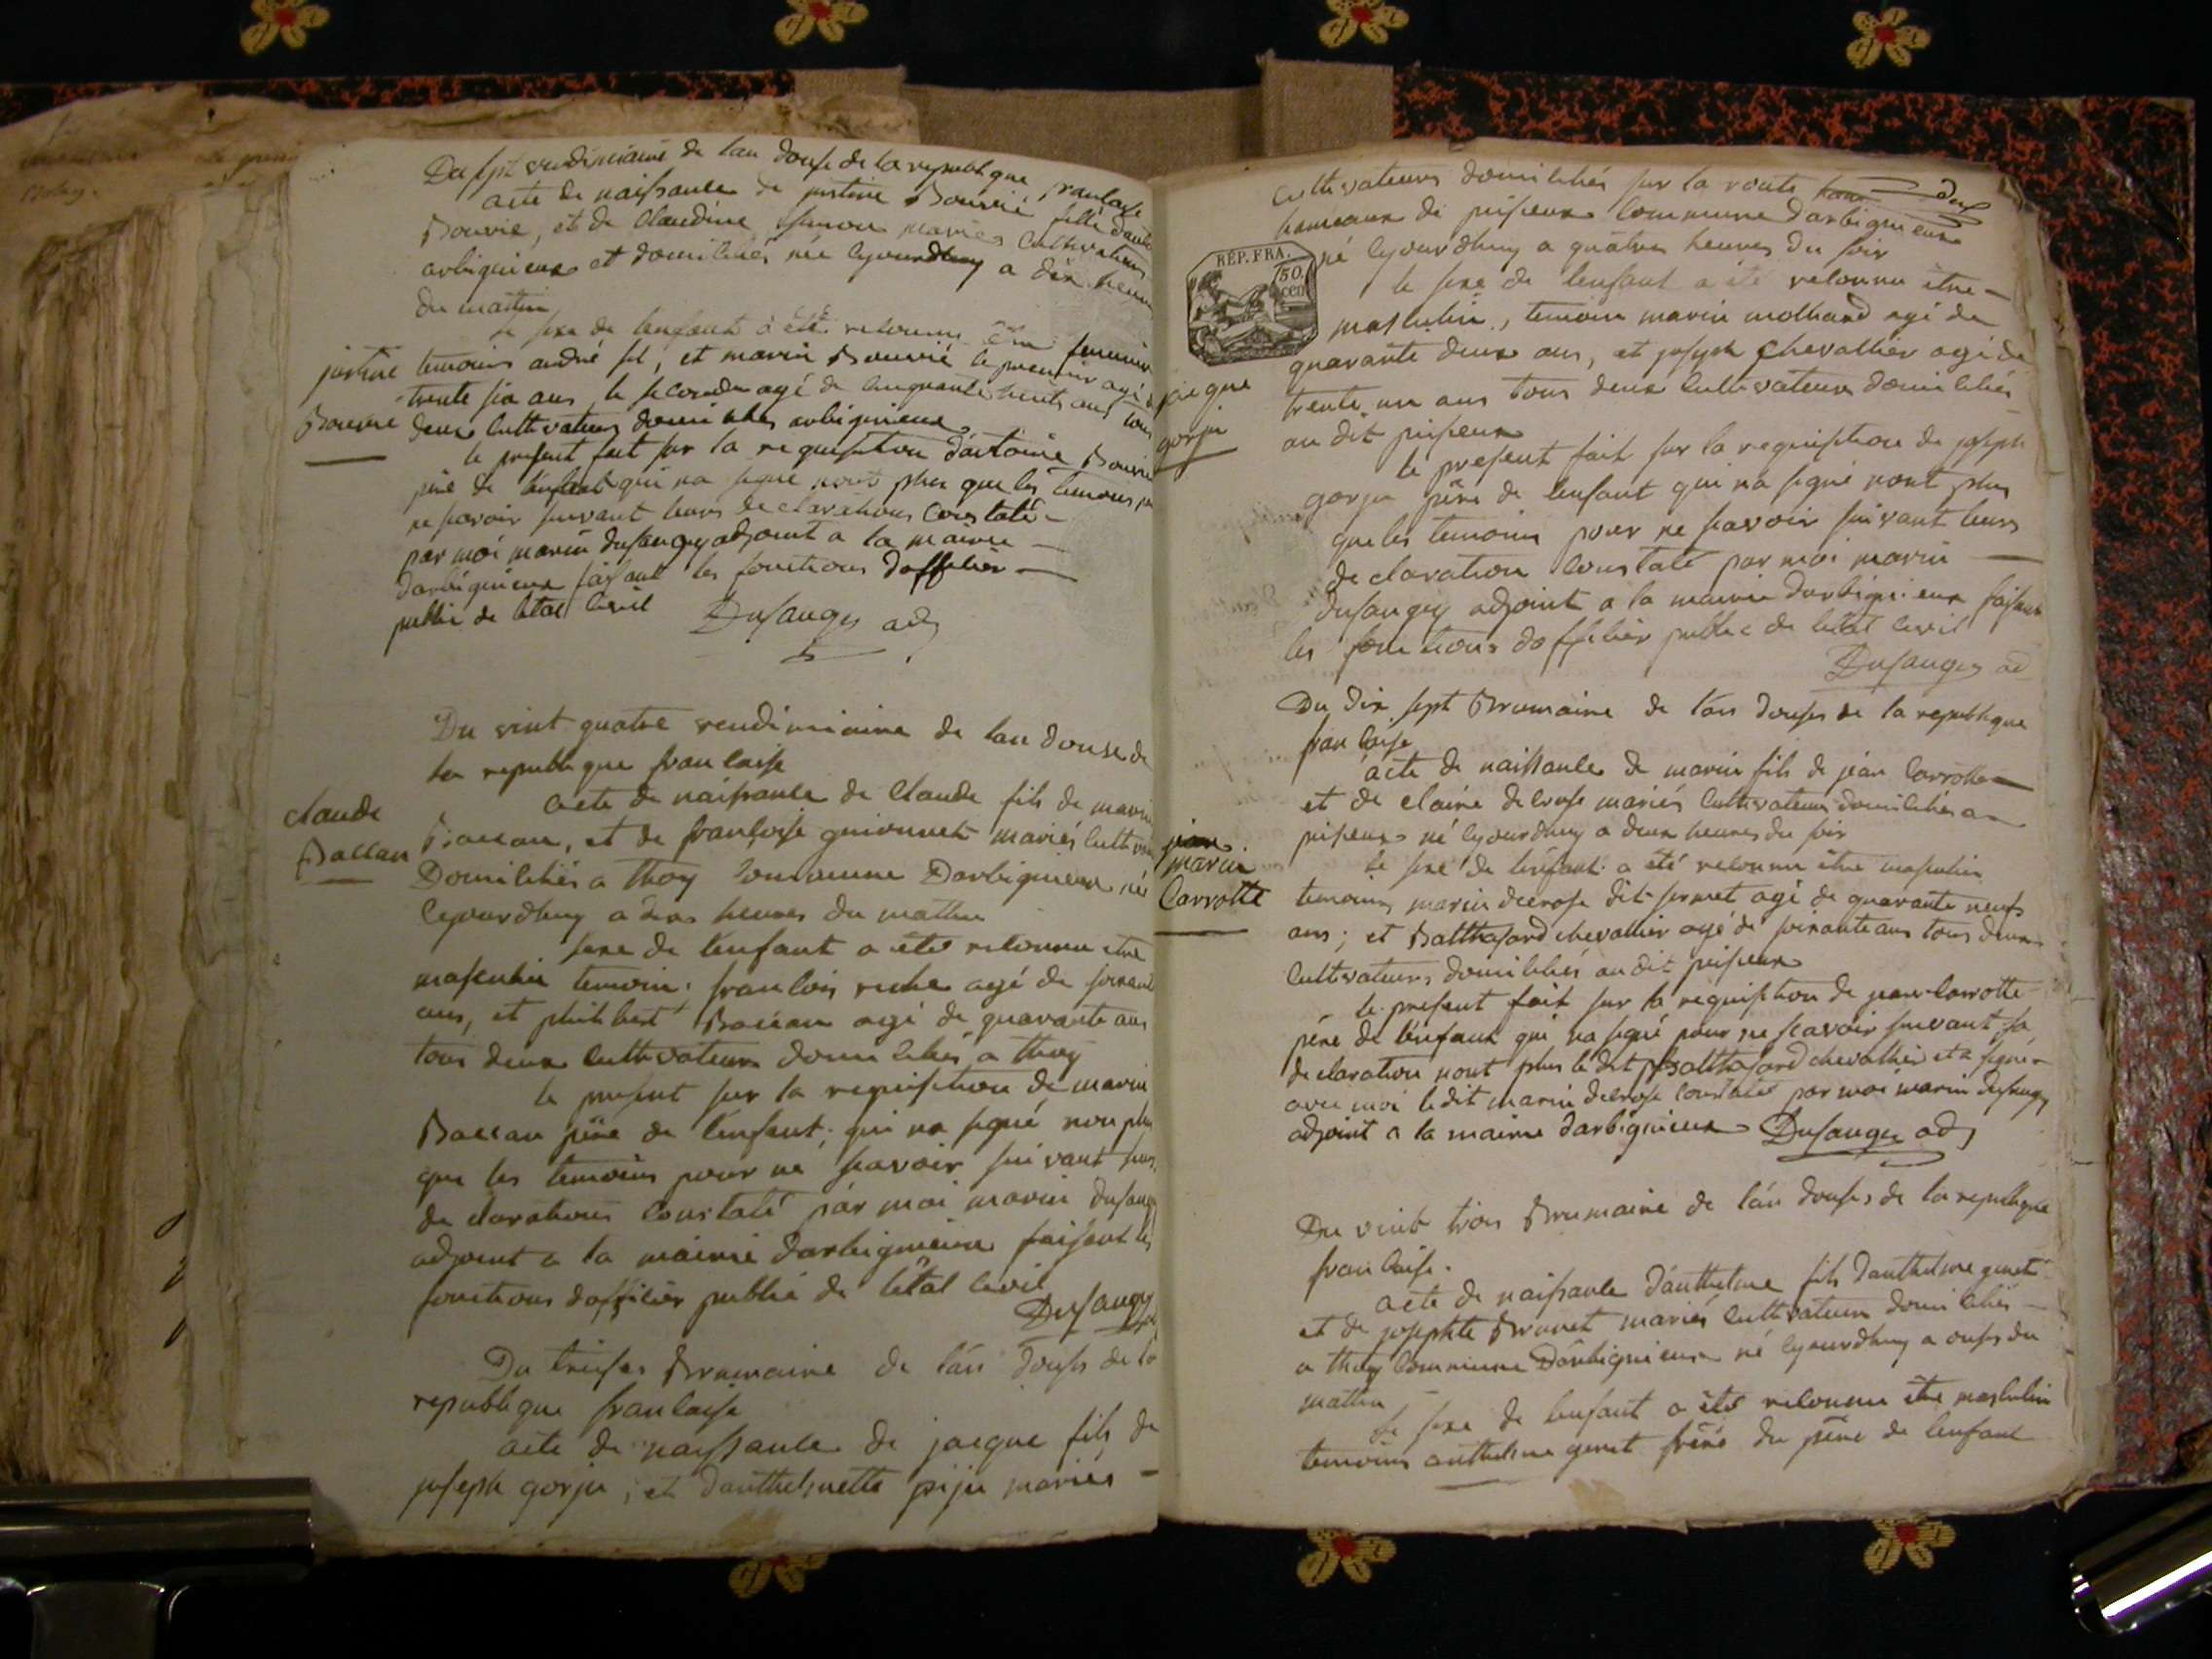 Du sept vendimiaire de lan douse de la republique francaise
acte de naissance de justine Bouvié fille danto
Bouvié, et de claudine mariés cultivateurs
arbignieux et domiciliés née cejourdhuy a dix heures
du mattin
le sexe de lenfant a été reconnu être feminin
justine
Bouvié
temoins andré fel, et marin Bouvié le premier agé de
trente six ans le second agé de cinquante huit ans tous
deux cultivateurs domiciliés arbignieux
le present fait sur la requisition dantoine Bouvié
père de lenfant qui na signé nont plus que les temoins pour
ne scavoir suivant leurs declarations constaté
par moi marin dusaugey adjoint a la mairie
darbignieux faisant les fonctions dofficier
public de létat civil Dusaugey adj
Du vint quatre vendimiaire de lan douse de
la republique francaise
claude
Baccan
acte de naissance de claude fils de marin
Baccan, et de francoise guionnet mariés cultiv
Domiciliés a thoy commune Darbignieux né
cejourdhuy a deux heures du mattin
sexe de lenfant a été reconnu etre
masculin temoins francois riche agé de soixante
ans, et philibert Baccan agé de quarante ans
tous deux cultivateurs domiciliés a thoy
le present sur la requisition de marin
Baccan père de l'enfant, qui na signé non plus
que les temoins pour ne scavoir suivant leurs
declarations constaté par moi marin dusaugey
adjoint a la mairie darbignieux faisant les
fonctions dofficier public de létat civil
Dusaugey
Du treise Brumaire de lán douse de la
republique francaise
acte de naissance de jacque fils de
joseph gorju, et danthelmette piju mariés
cultivateurs domiciliés sur la route
hameaux de peisieux commune darbignieux
né cejourdhuy a quatre heures du soir
RÉP. FRA.
50
cen
le sexe de lenfant a été reconnu être
masculin, temoins marin molhard agé de
quarante deux ans, et joseph chevallier agé de
trente un ans tous deux cultivateurs domiciliés
au dit peisieux
jacque
gorju
le present fait sur la requisition de joseph
gorju père de lenfant qui na signé nont plus
que les temoins pour ne scavoir suivant leurs
declaration constaté par moi marin
dusaugey adjoint a la mairie darbignieux faisant
les fonctions dofficier public de létat civil
Dusaugey ad
Du dix sept Brumaire de lán douse de la republique
francaise
acte de naissance de marin fils de jean Carrotte
et de claire decrose mariés cultivateurs domiciliés a
peisieux né cejourdhuy a deux heures du soir
jean
marin
Carrotte
le sexe de lenfant a été reconnu être masculin
temoins marin decrose dit agé de quarante neuf
ans; et Balthasard chevallier agé de soixante ans tous deux
cultivateurs domiciliés au dit peisieux
le present fait sur la requisition de jean Carrotte
père de lenfant qui na signé pour ne scavoir suivant sa
declaration nont plus le dit Balthasard chevallier et a signé
avec moi ledit marin decrose constaté par moi marin dusaugey
adjoint a la mairie darbignieux Dusaugey adj
Du vint trois Brumaire de lán douse de la republique
francaise.
acte de naissance danthelme fils danthelme genet
et de josephte Brunet mariés cultivateurs domiciliés
a thoy commune Darbignieux né cejourdhuy a onse du
mattin
le sexe de lenfant a été reconnu être masculin
temoins anthelme genet frère du père de lenfant